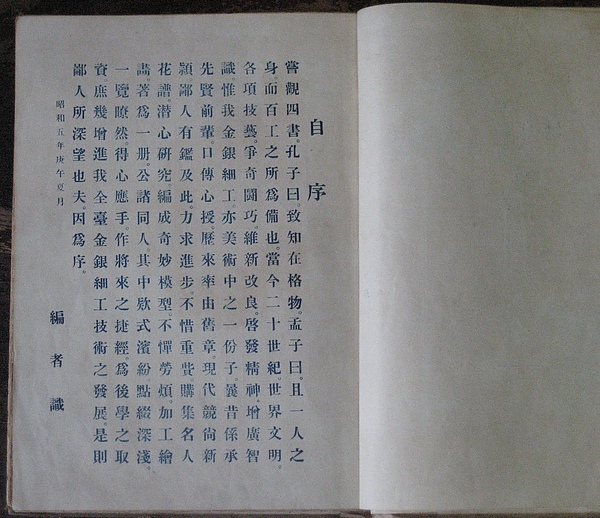 自序
嘗觀四書。孔子曰。致知在格物。孟子曰。且一人之
身而百工之所為備也。當今二十世紀。世界文明。
各項技藝。爭奇鬪巧。維新改良。啓發精神。增廣智
識。惟我金銀細工。亦美術中之一份子。曩昔係承
先賢前輩。口傳心授。歷來率由舊章。現代競尙新
穎。鄙人有鑑及此。力求進步。不惜重貲購集名人
花譜。潛心研究。編成奇妙模型。不憚勞煩加工繪
畵。著為一册。公諸同人。其中欵式濱紛點綴深淺。
一覽瞭然。得心應手。作將來之捷經。為後學之取
資。庶幾增進我全臺金銀細工技術之發展。是則
鄙人所深望也夫。因為序。
昭和五年庚午夏月
編者識